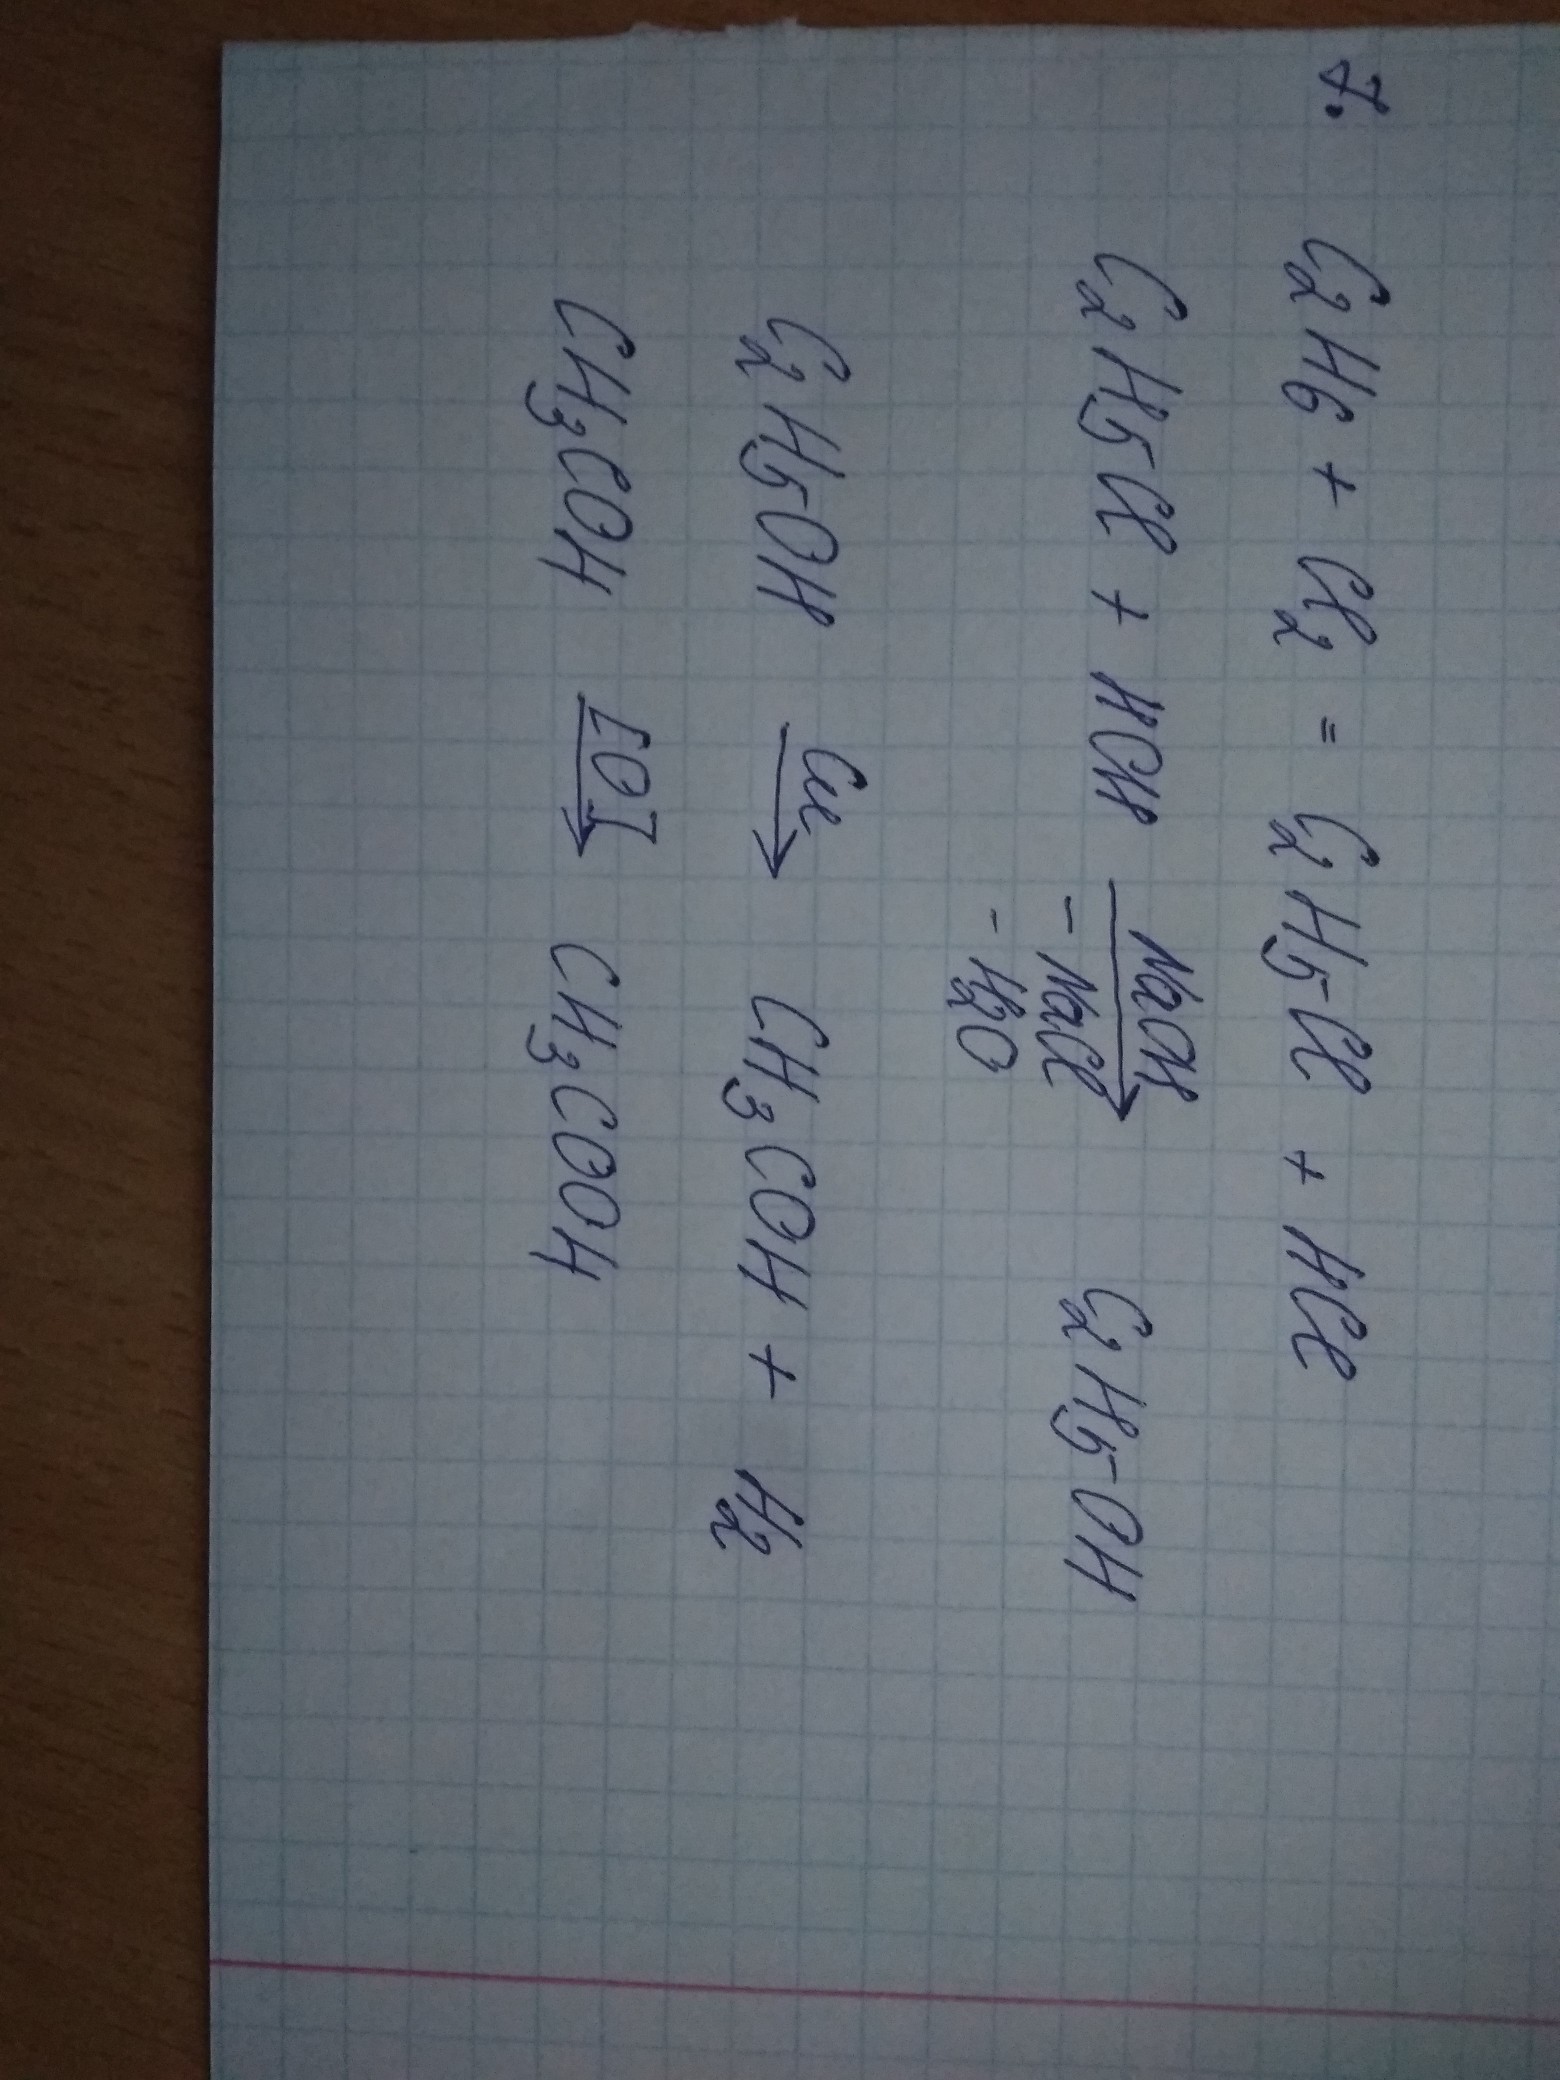 7. C2H6 + Cl2 = C2H5Cl + HCl
C2H5Cl + HOH NaOH → C2H5OH
- NaCl
- H2O
C2H5OH Cu → CH3COH + H2
CH3COH [O] → CH3COOH